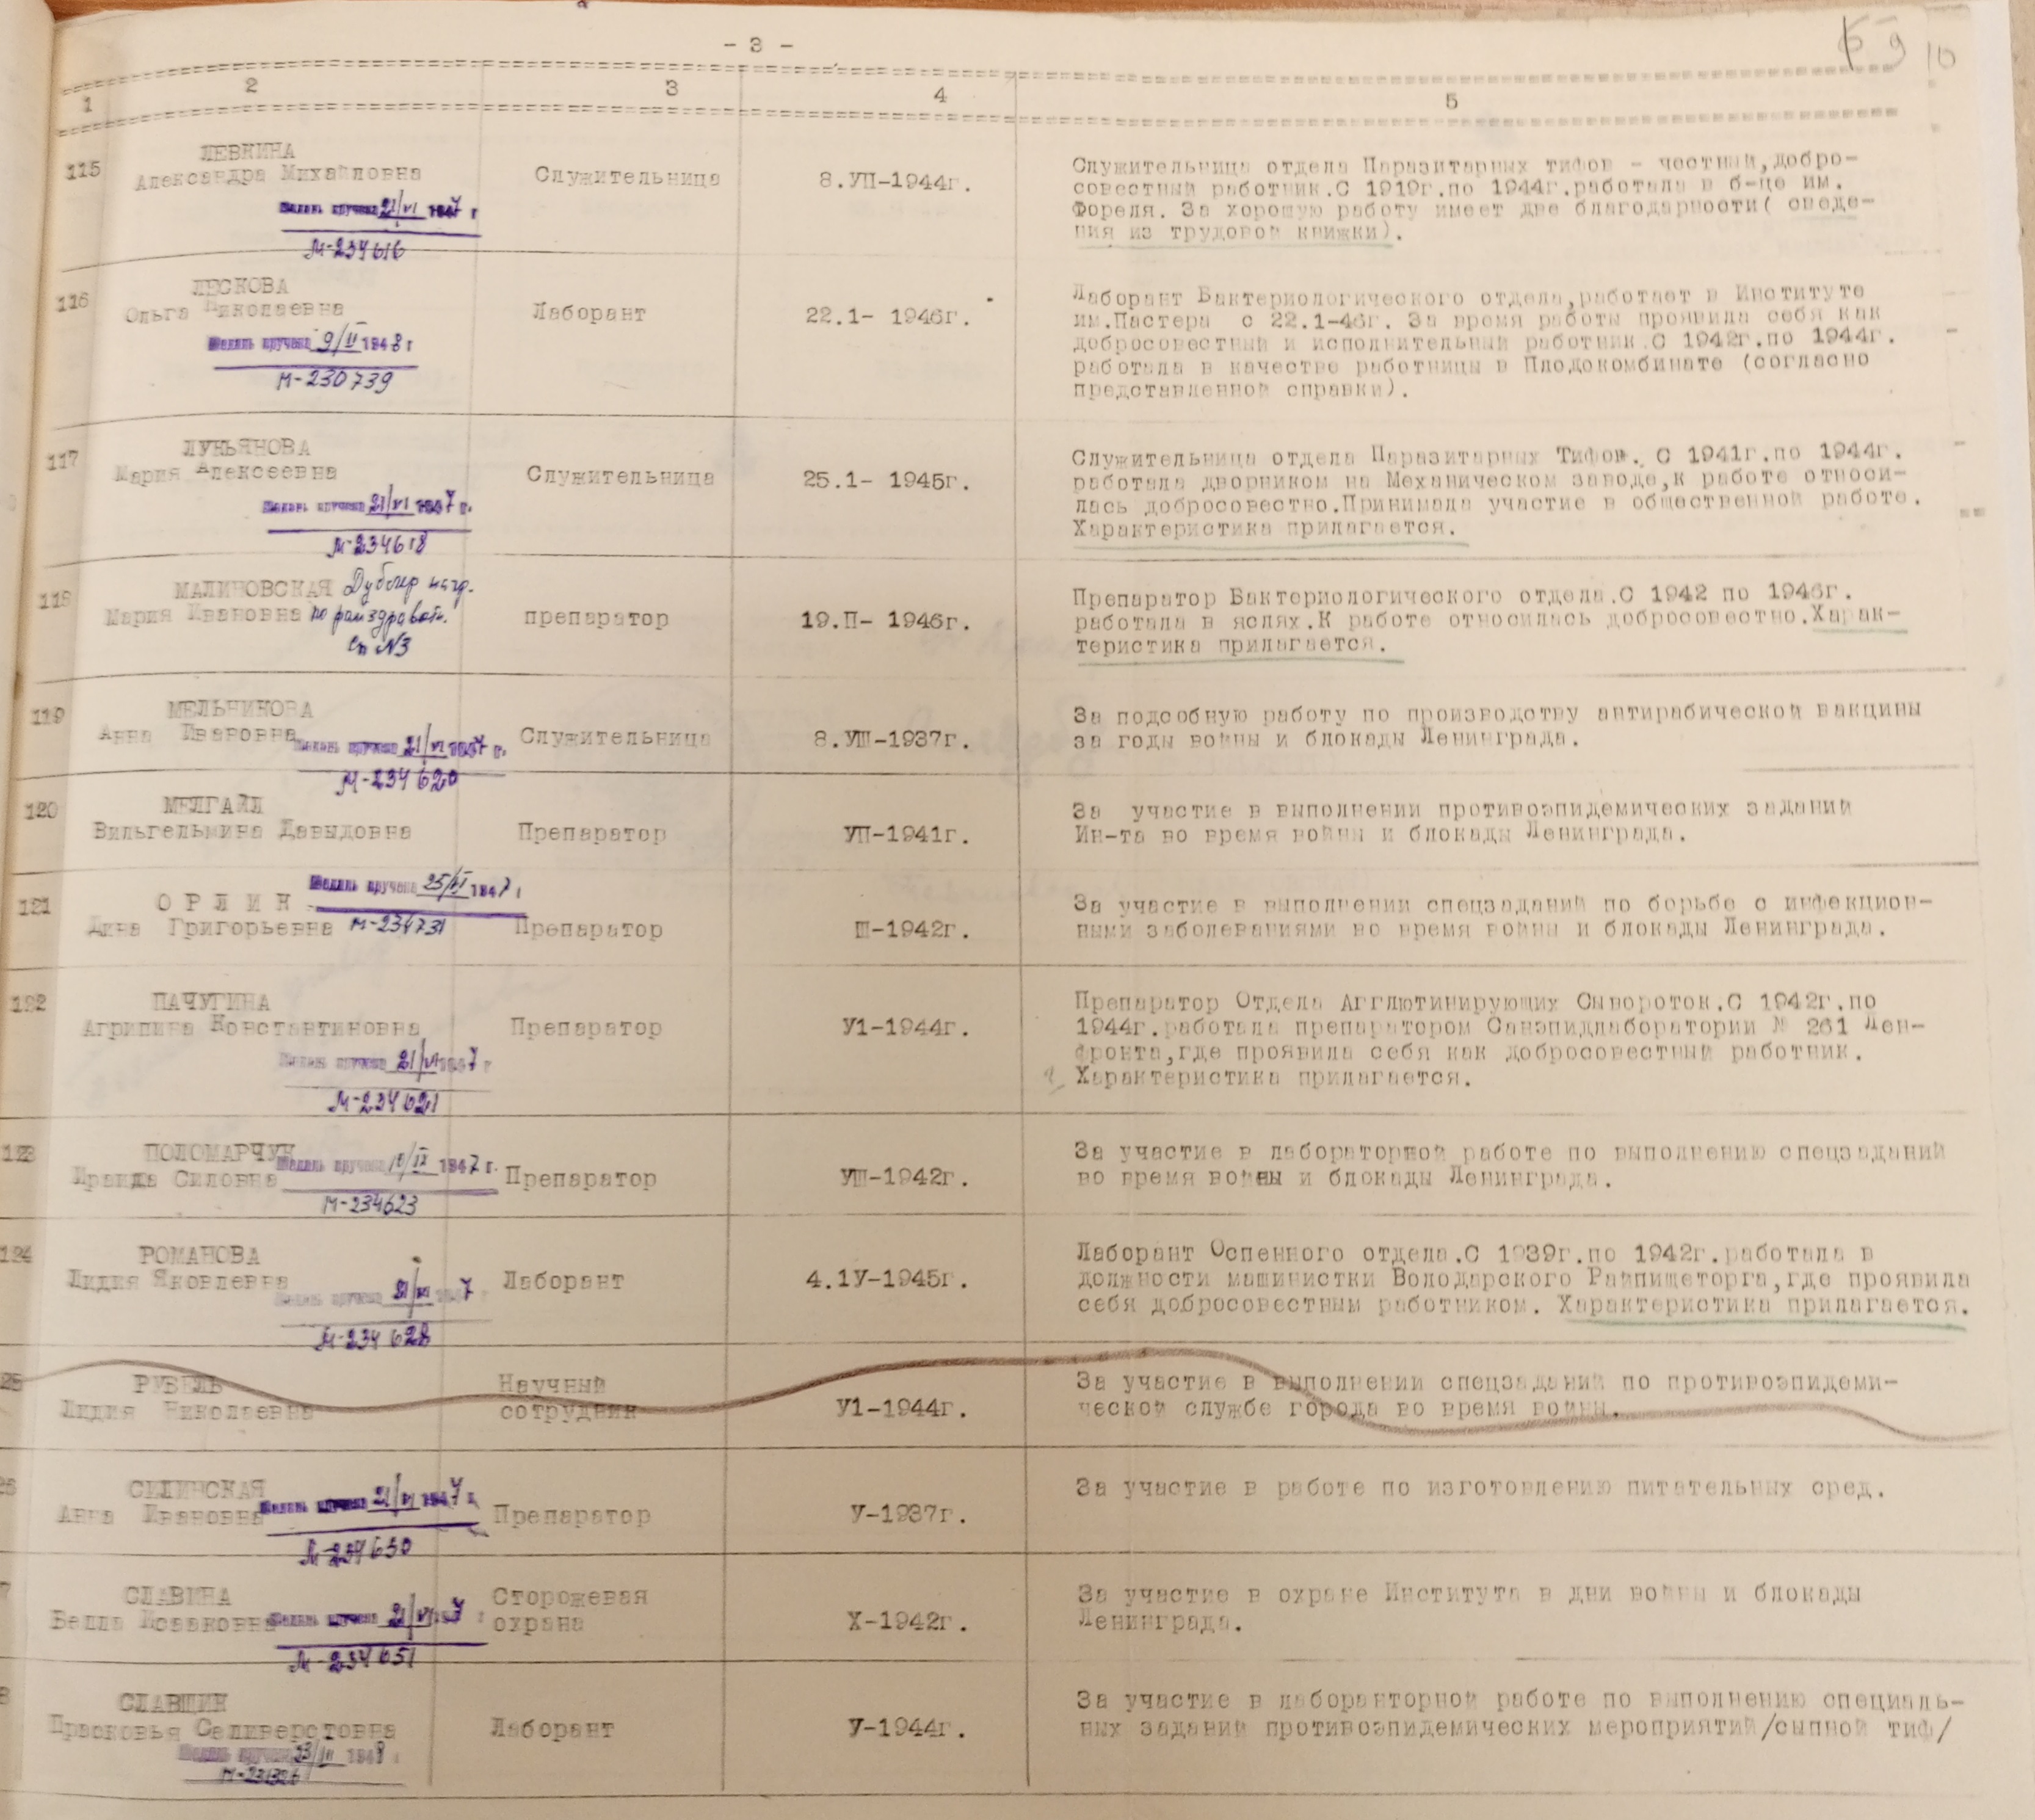 - 3 -
5 9 10
1 2 3 4 5
115 ЛЕВКИНА
Александра Михайловна
Медаль вручена 21/VI 1947 г
М-234616
Служительница
8.УП-1944г.
Служительница отдела Паразитарных тифов - честный,добро-
совестный работник.С 1919г.по 1944г.работала в б-це им.
Фореля. За хорошую работу имеет две благодарности( сведе-
ния из трудовой книжки).
116 ЛЕСКОВА
Ольга Николаевна
Медаль вручена 9/II 1948 г
М-230739
Лаборант
22.1- 1946г.
Лаборант Бактериологического отдела,работает в Институте
им.Пастера с 22.1-46г. За время работы проявила себя как
добросовестный и исполнительный работник.С 1942г.по 1944г.
работала в качестве работницы в Плодокомбинате (согласно
представленной справки).
117 ЛУКЬЯНОВА
Мария Алексеевна
Медаль вручена 21/VI 1947 г.
М-234618
Служительница
25.1- 1945г.
Служительница отдела Паразитарных Тифов. С 1941г.по 1944г.
работала дворником на Механическом заводе,к работе относи-
лась добросовестно.Принимала участие в общественной работе.
Характеристика прилагается.
118 МАЛИНОВСКАЯ
Мария Ивановна по райздравот.
Сп №3
препаратор
19.П- 1946г.
Препаратор Бактериологического отдела.С 1942 по 1946г.
работала в яслях.К работе относилась добросовестно.Харак-
теристика прилагается.
119 МЕЛЬНИКОВА
Анна Ивановна
Медаль вручена 21/VI 1947 г.
М-234620
Служительница
8.УШ-1937г.
За подсобную работу по производству антирабической вакцины
за годы войны и блокады Ленинграда.
120 МЕЛГАЙЛ
Вильгельмина Давыдовна
Препаратор
УП-1941г.
За участие в выполнении противоэпидемических заданий
Ин-та во время войны и блокады Ленинграда.
121 О Р Л И Н
Дина Григорьевна
Медаль вручена 25/VI 1947 г
М-234731
Препаратор
Ш-1942г.
За участие в выполнении спецзаданий по борьбе с инфекцион-
ными заболеваниями во время войны и блокады Ленинграда.
122 ПАЧУГИНА
Агрипина Константиновна
Медаль вручена 21/VI 1947 г
М-234621
Препаратор
У1-1944г.
Препаратор Отдела Агглютинирующих Сывороток.С 1942г.по
1944г.работала препаратором Санэпидлаборатории № 261 Лен-
фронта,где проявила себя как добросовестный работник.
Характеристика прилагается.
123 ПОЛОМАРЧУК
Ираида Силовна
Медаль вручена 1947 г.
М-234623
Препаратор
УШ-1942г.
За участие в лабораторной работе по выполнению спецзаданий
во время войны и блокады Ленинграда.
124 РОМАНОВА
Лидия Яковлевна
Медаль вручена 21/VI 1947 г
М-234628
Лаборант
4.1У-1945г.
Лаборант Оспенного отдела.С 1939г.по 1942г.работала в
должности машинистки Володарского Райпищеторга,где проявила
себя добросовестным работником. Характеристика прилагается.
25 РУБЕЛЬ
Лидия Николаевна
Научный
сотрудник
У1-1944г.
За участие в выполнении спецзаданий по противоэпидеми-
ческой службе города во время войны.
26 СЕЛИНСКАЯ
Анна Ивановна
Медаль вручена 21/VI 1947 г.
М-234630
Препаратор
У-1937г.
За участие в работе по изготовлению питательных сред.
7 СЛАВИНА
Белла Исааковна
Медаль вручена 21/VI 1947 г
М-234651
Сторожевая
охрана
Х-1942г.
За участие в охране Института в дни войны и блокады
Ленинграда.
8 СЛАВЩИК
Прасковья Селиверстовна
Медаль вручена 1948 г
Лаборант
У-1944г.
За участие в лаборанторной работе по выполнению специаль-
ных заданий противоэпидемических мероприятий/сыпной тиф/